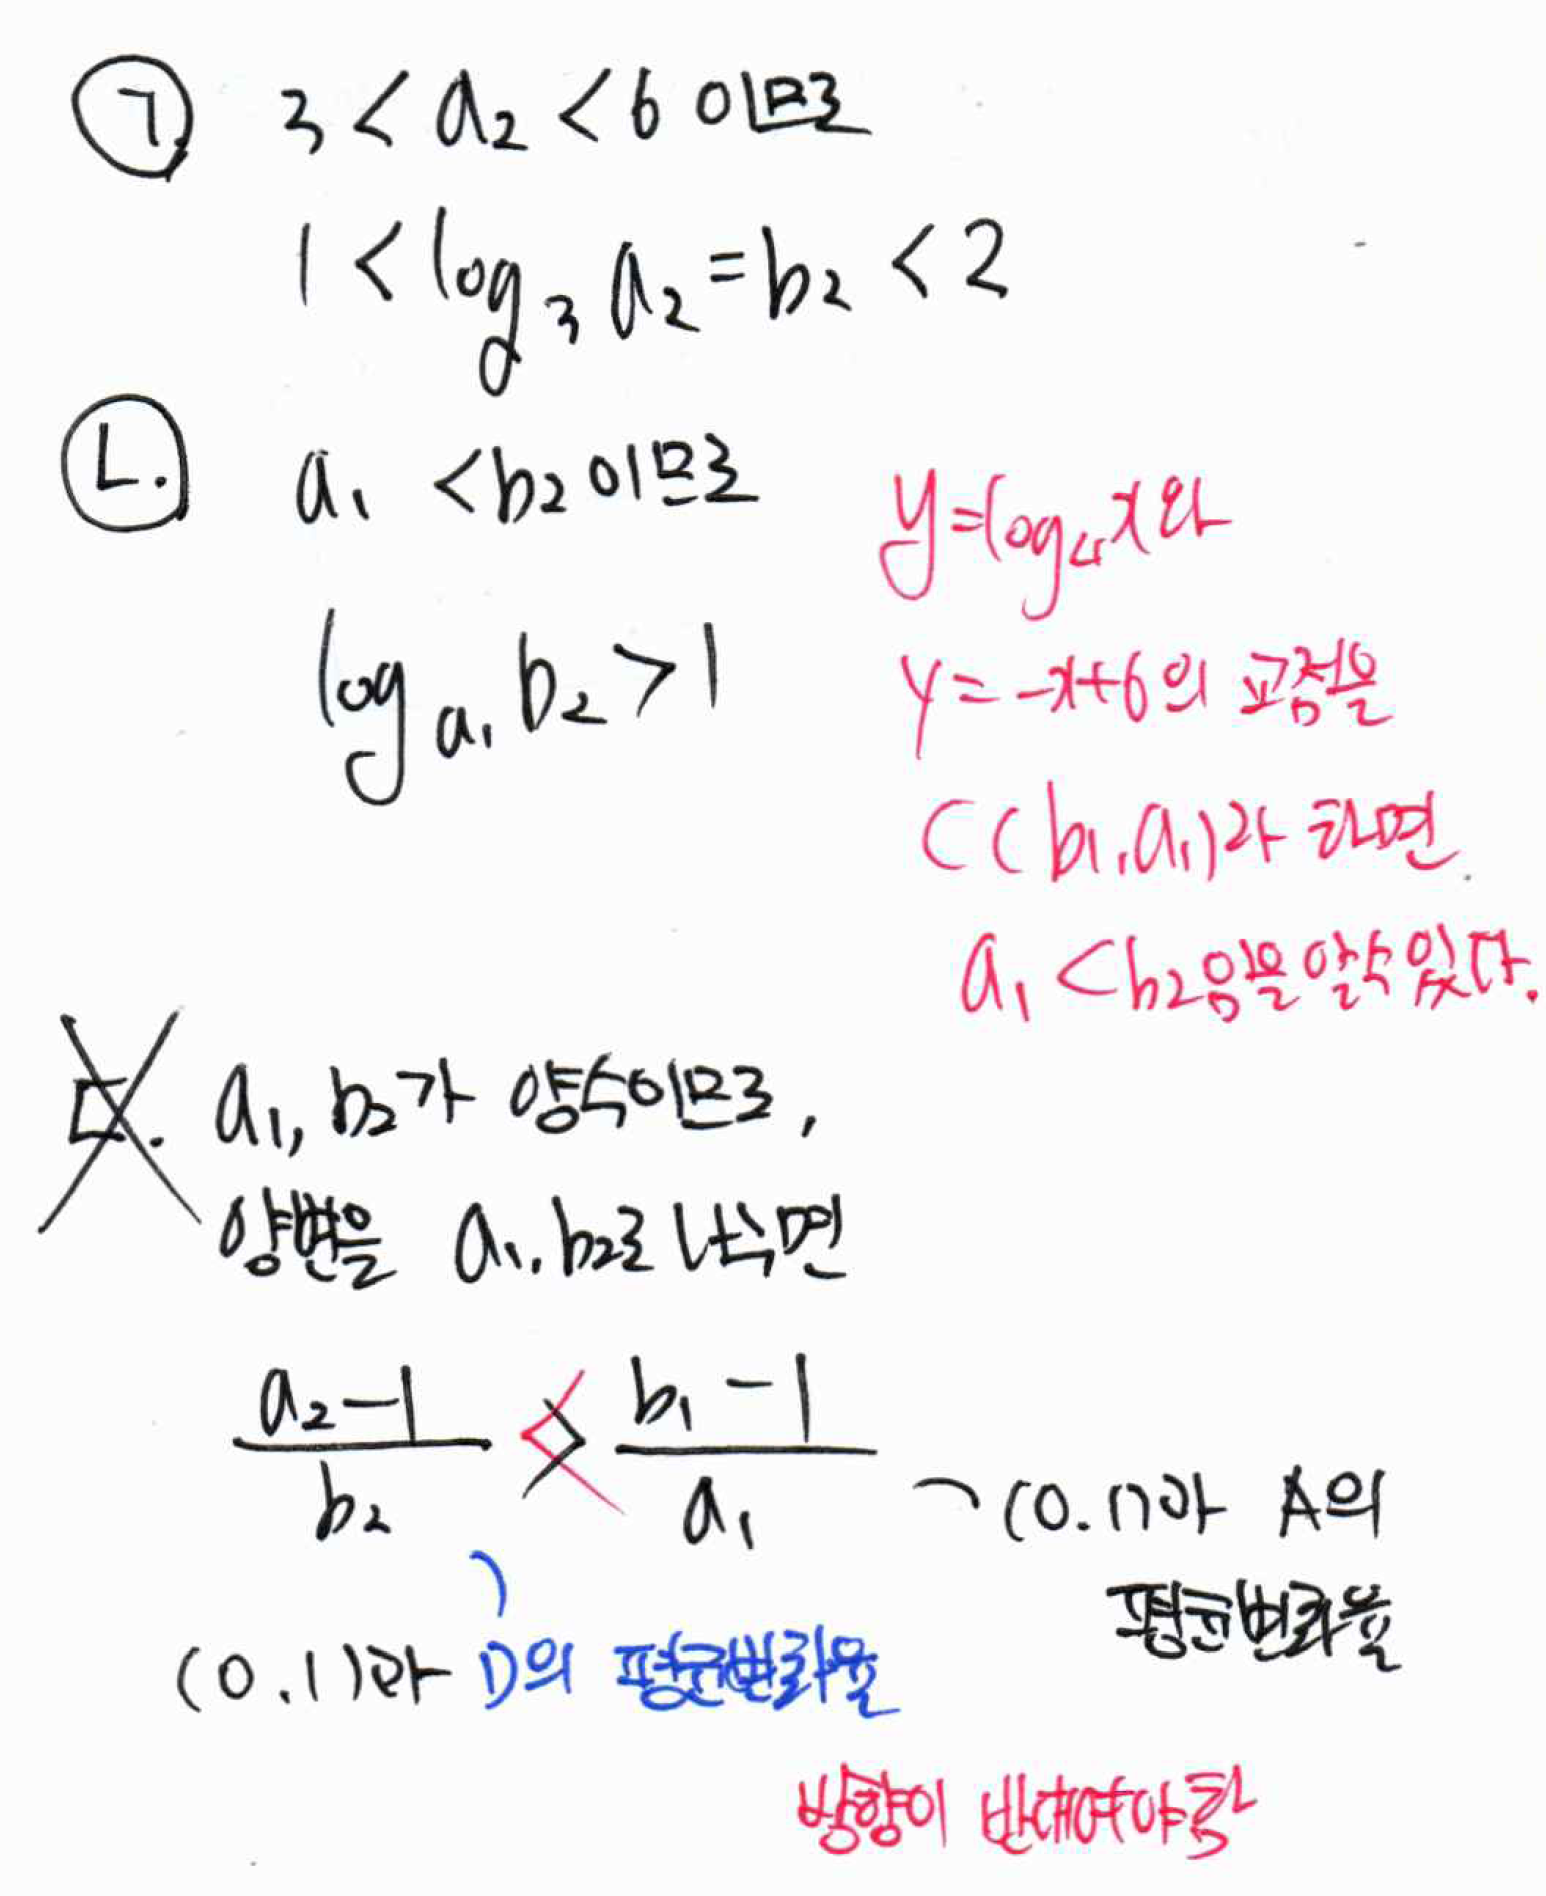 ㄱ. 3 < a₂ < 6 이므로
1 < log₃ a₂ = b₂ < 2
ㄴ. a₁ < b₂ 이므로
log a₁ b₂ > 1
y = log₄ x 와
y = -x+6 의 교점을
C(b₁, a₁)라 하면
a₁ < b₂임을 알 수 있다.
ㄷ. a₁, b₂가 양수이므로,
양변을 a₁, b₂로 나누면
(a₂-1)/b₂ > (b₁-1)/a₁
(0.1)과 A의
평균변화율
(0.1)과 D의 평균변화율
방향이 반대여야 함